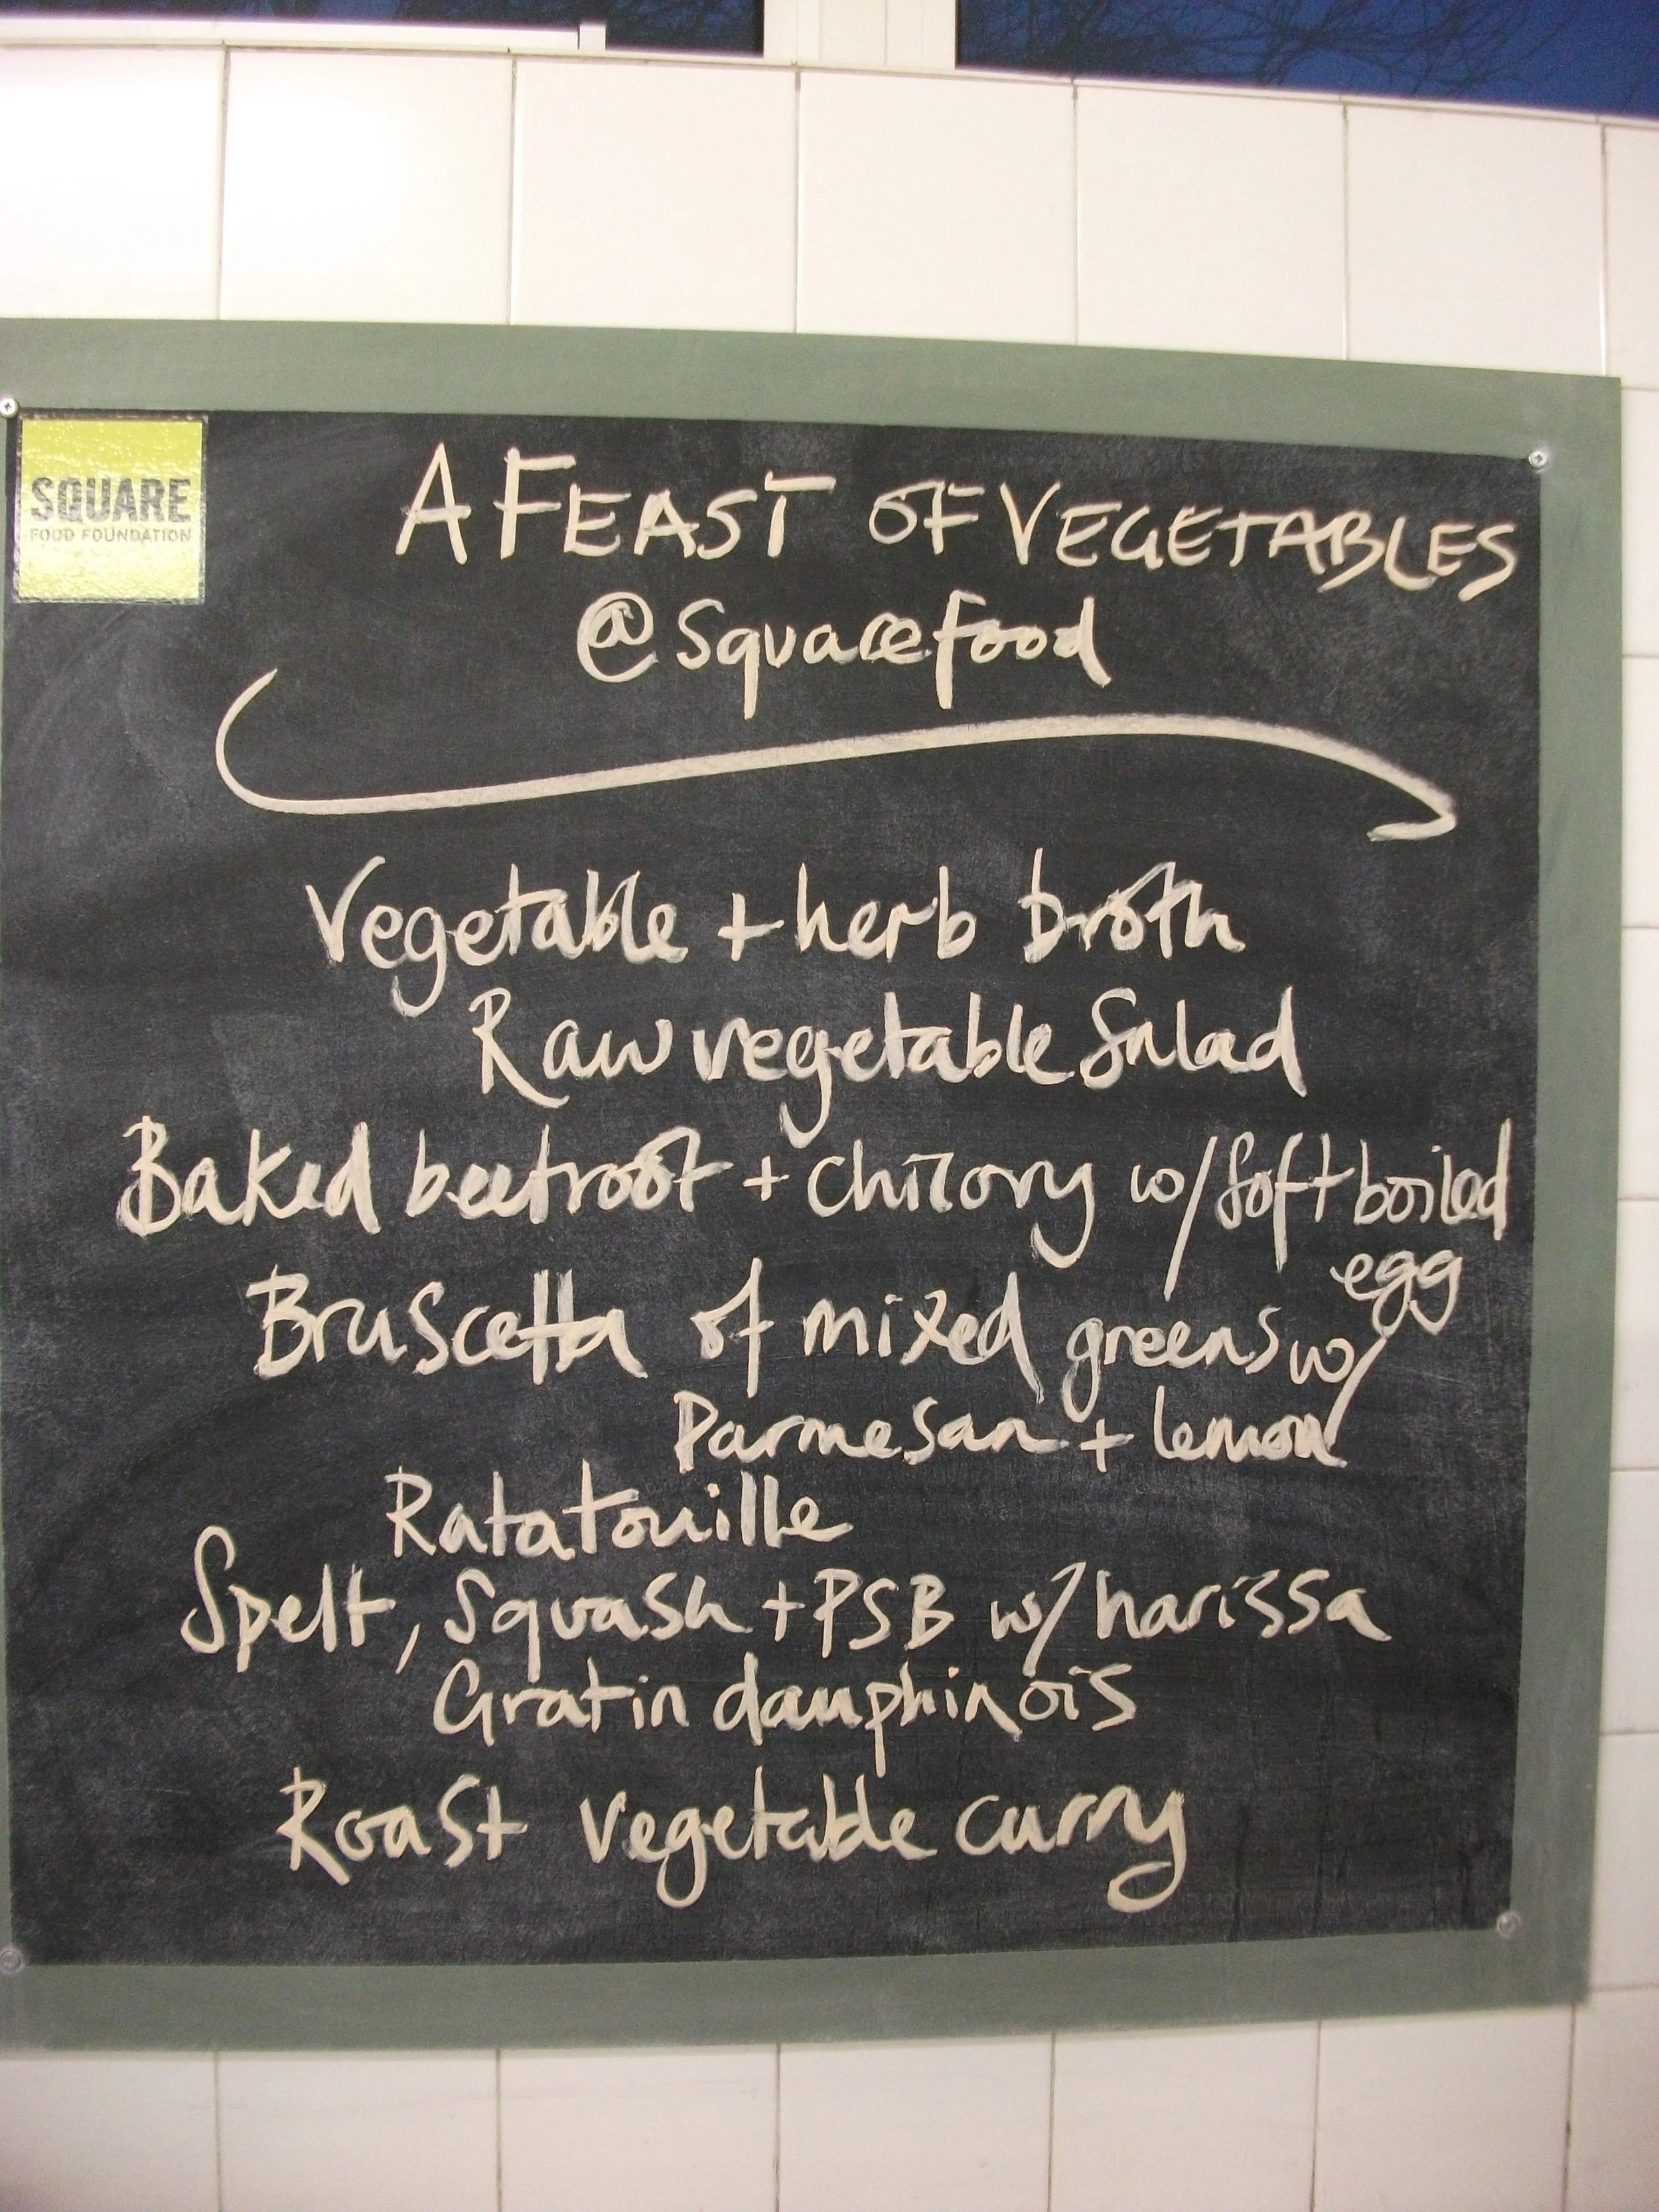 SQUARE
FOOD FOUNDATION
A FEAST OF VEGETABLES
@squarefood
Vegetable + herb broth
Raw vegetable Salad
Baked beetroot + chicory w/ soft boiled
egg
Bruscetta of mixed greens w/
Parmesan + lemon
Ratatouille
Spelt, Squash + PSB w/ harissa
Gratin dauphinois
Roast vegetable curry